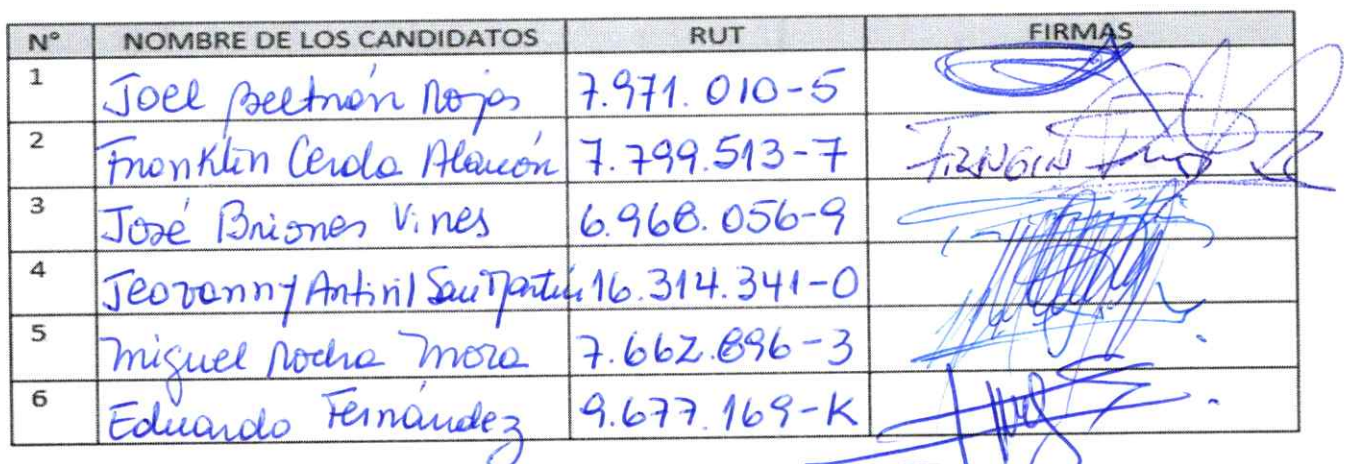 N° NOMBRE DE LOS CANDIDATOS RUT FIRMAS
1 Joel Beltrán Rojas 7.971.010-5
2 Franklin Cerda Alarcón 7.799.513-7
3 José Briones Vines 6.968.056-9
4 Jeovanny Antiñil San Martín 16.314.341-0
5 Miguel Rocha Mora 7.662.896-3
6 Eduardo Fernández 9.677.169-K